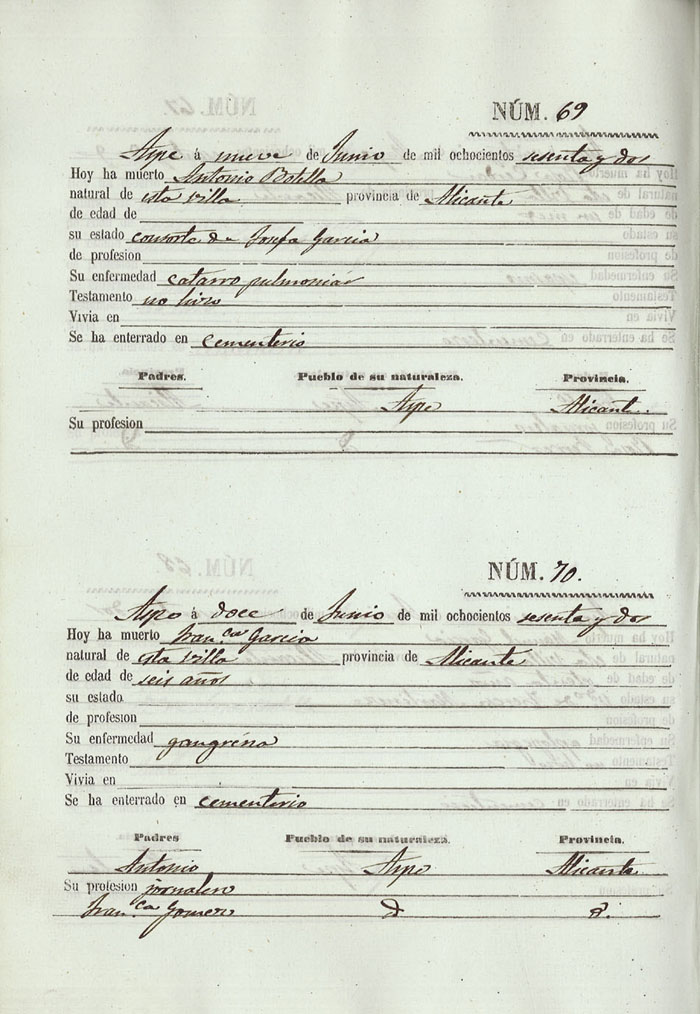 NÚM. 69
Aspe á nueve de Junio de mil ochocientos sesenta y dos
Hoy ha muerto Antonio Botella
natural de esta villa provincia de Alicante
de edad de
su estado consorte de Josefa Garcia
de profesion
Su enfermedad catarro pulmoniar
Testamento no hizo
Vivia en
Se ha enterrado en cementerio
Padres. Pueblo de su naturaleza. Provincia.
Aspe Alicante.
Su profesion
NÚM. 70.
Aspe á doce de Junio de mil ochocientos sesenta y dos
Hoy ha muerto Fran.ca Garcia
natural de esta villa provincia de Alicante
de edad de seis años
su estado
de profesion
Su enfermedad gangrena
Testamento
Vivia en
Se ha enterrado en cementerio
Padres Pueblo de su naturaleza. Provincia.
Antonio Aspe Alicante
Su profesion jornalero
Fran.ca Gomez